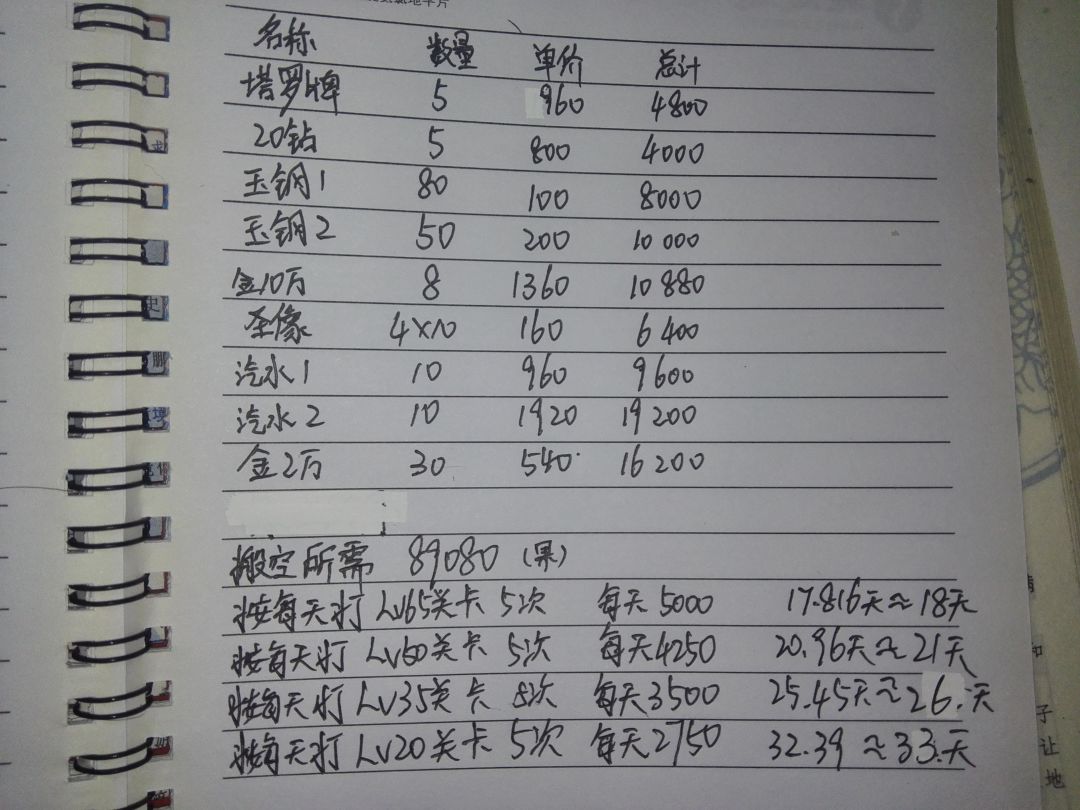 名称 数量 单价 总计
塔罗牌 5 960 4800
20钻 5 800 4000
玉钢1 80 100 8000
玉钢2 50 200 10000
金10万 8 1360 10880
圣像 4×10 160 6400
汽水1 10 960 9600
汽水2 10 1920 19200
金2万 30 540 16200
搬空所需 89080(果)
按每天打 Lv65关卡 5次 每天5000 17.816天≈18天
按每天打 Lv50关卡 5次 每天4250 20.96天≈21天
按每天打 Lv35关卡 5次 每天3500 25.45天≈26天
按每天打 Lv20关卡 5次 每天2750 32.39≈33天